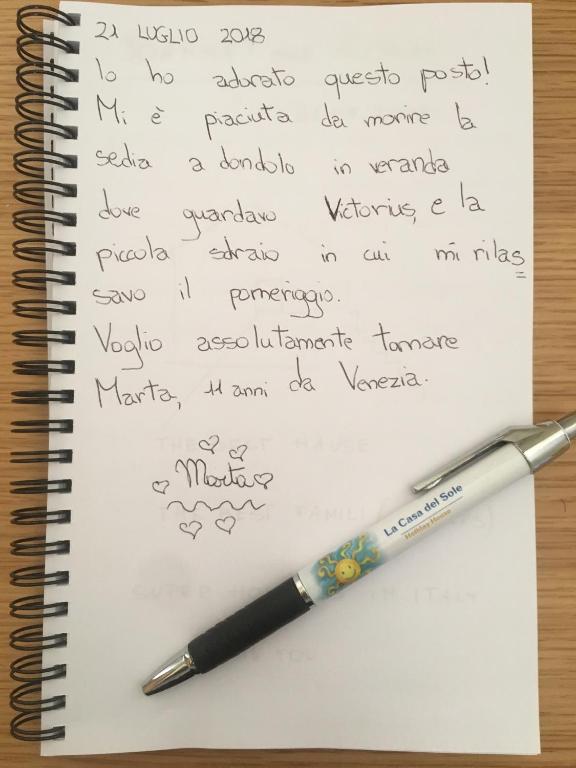 21 LUGLIO 2018
Io ho adorato questo posto!
Mi è piaciuta da morire la
sedia a dondolo in veranda
dove guardavo Victorius, e la
piccola sdraio in cui mi rilas
savo il pomeriggio.
Voglio assolutamente tornare
Marta, 11 anni da Venezia.
Marta
La Casa del Sole
Holiday House